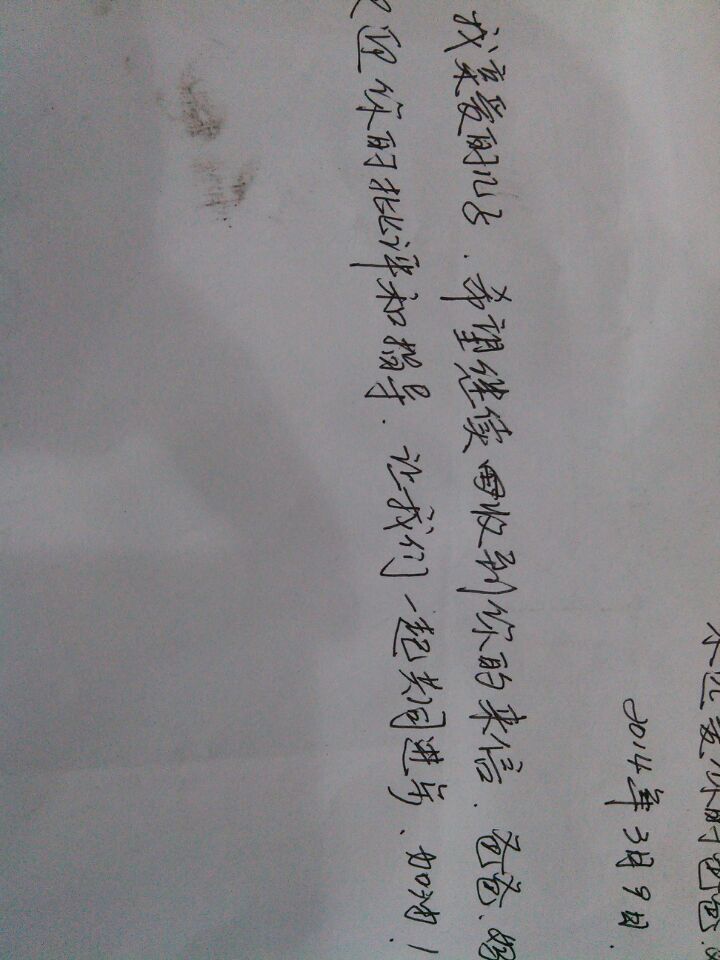 永远爱你的爸爸.
2014年3月9日.
我亲爱的儿子.希望继续收到你的来信.爸爸.妈
迎你的批评和指导.让我们一起共同进步、加油！